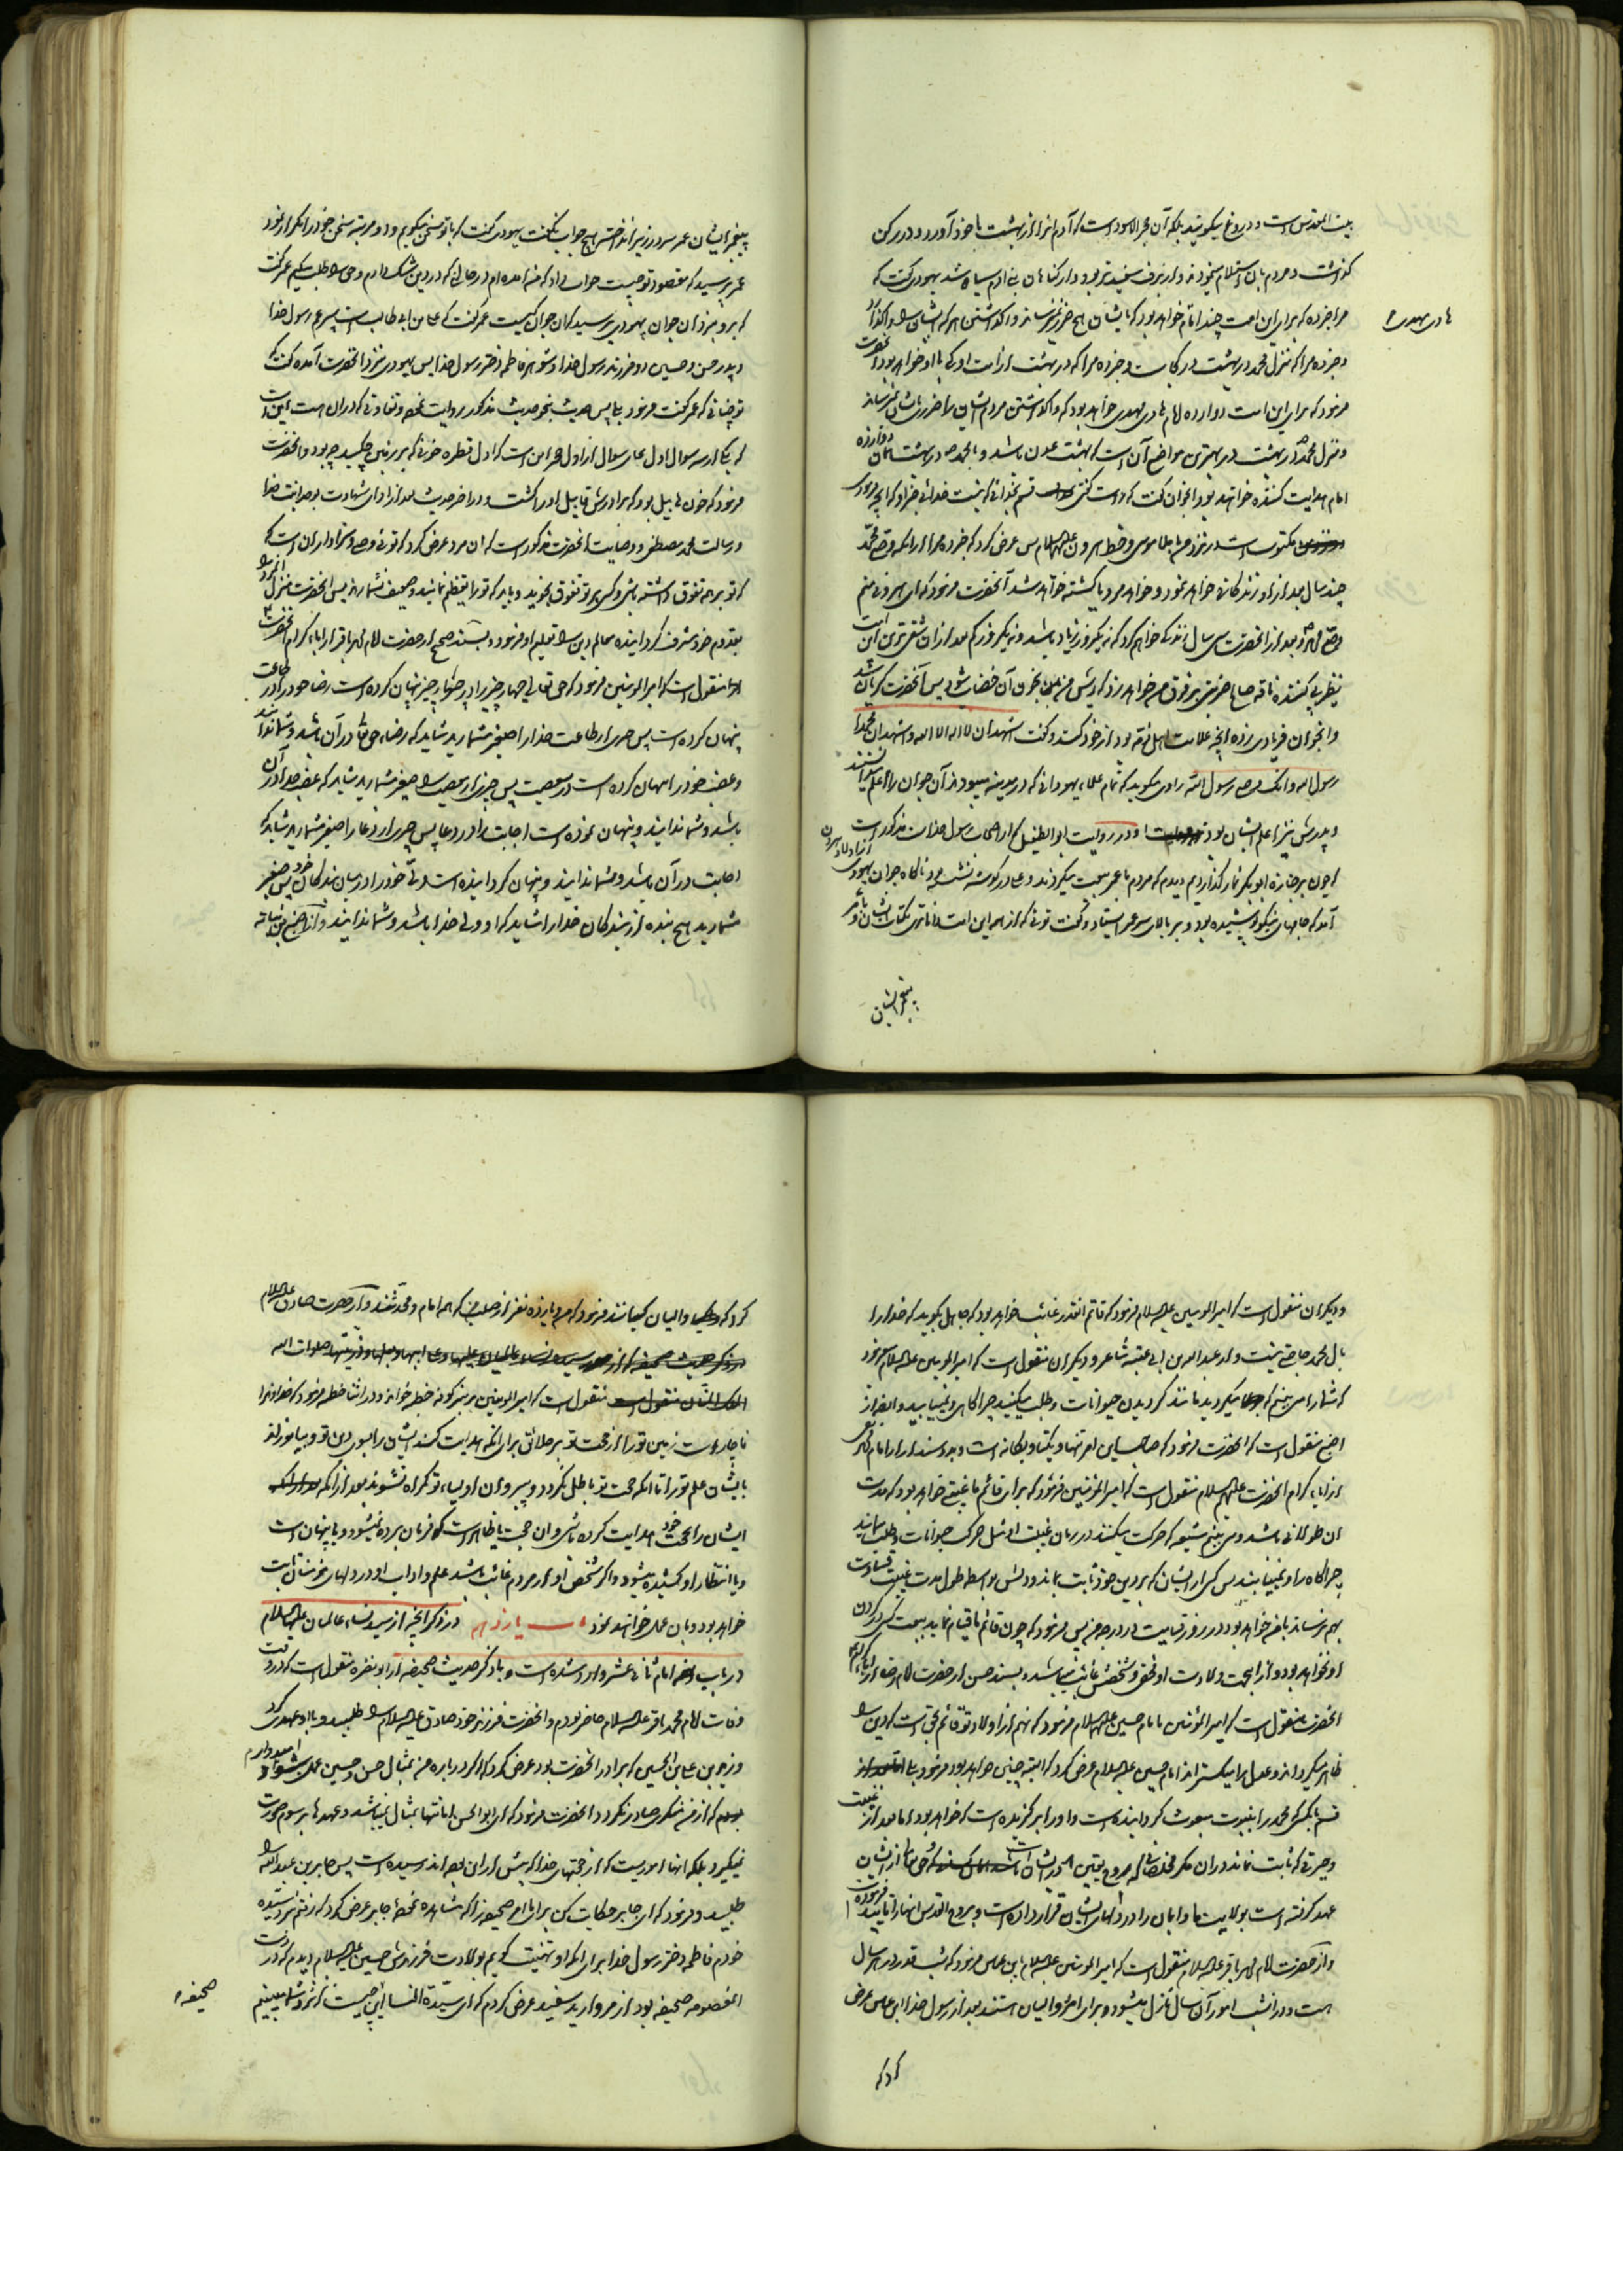 بیت المقدس است و دروغ میگویند بلکه آن حجر الاسود است که آدم انرا از بهشت با خود آورد و در رکن
گذاشت و مردم بان استلام مینمودند و از برف سفیدتر بود و از گناهان بنی ادم سیاه شد یهودی گفت که
مرا خبر ده که برای این امت چند امام خواهد بود که بایشان هیچ ضرر نرساند واگذاشتن هر که ایشان را واگذارد
هادی مهدی
و خبر ده مرا که منزل محمد در بهشت در کجاست و خبر ده مرا که در بهشت از امت او که با او خواهد بود انحضرت
فرمود که برای این امت دوازده امام هادی مهدی خواهد بود که واگذاشتن مردم ایشان را ضرر بایشان نمیرساند
و منزل محمد در بهشت در بهترین مواضع آن است که بهشت عدن باشد و با محمد در بهشت همان دوازده
امام هدایت کننده خواهند بود انجوان گفت که راست گفتی قسم بخدائی که نیست خدائی جز او که انچه فرمودی
مکتوبست در نزد من باملاء موسی و خط هرون علیهما السلام پس عرض کرد که خبر ده مرا از انکه وصی محمد
چند سال بعد از او زندگانی خواهد نمود و خواهد مرد یا کشته خواهد شد آنحضرت فرمود که ای هرونی منم
وصی محمد و بعد از انحضرت سی سال زندگی خواهم کرد که نه یکروز زیاد باشد و نه یکروز کم بعد از ان شقی ترین این امت
نظیر پی کننده ناقه صالح ضربتی بر فرق من خواهد زد که ریش من بخون آن خضاب شود پس آنحضرت گریان شد
وانجوان فریادی زده انچه علامت اهل ذمه بود از خود گسست و گفت اشهد ان لا اله الا الله و اشهد ان محمدا
رسول الله و انک وصی رسول الله راوی میگوید که تمام علماء یهودانی که در مدینه میبودند آن جوان را اعلم میدانستند
و پدرش نیز اعلم ایشان بود و در روایت ابو الطفیل که از اصحاب رسول خداست مذکور است
که چون بر جنازه ابو بکر نماز گذاردیم دیدم که مردم با عمر بیعت میکردند و علی در گوشه نشسته بود ناگاه جوان یهودی از اولاد هرون
آمد که جامهای نیکو پوشیده بود و بر بالای سر عمر ایستاد و گفت توئی که از همه این امت داناتری بکتاب ایشان و امر
پیغمبر ایشان
پیغمبر ایشان عمر سر در زیر انداخته هیچ جواب نگفت یهودی گفت که با تو سخن میگویم و دو مرتبه سخن خود را مکرر نمود
عمر پرسید که مقصود تو چیست جواب داد که من آمده ام در حالی که در دین شک دارم و حق را طلب میکنم عمر گفت
که برو نزد ان جوان یهودی پرسید که ان جوان کیست عمر گفت که علی بن ابی طالب است پسر عم رسول خدا
و پدر حسن و حسین دو فرزند رسول خدا و شوهر فاطمه دختر رسول خدا پس یهودی نزد انحضرت آمده گفت که
تو چنانی که عمر گفت فرمود بلی پس حدیث بنحو حدیث مذکور روایت شده و تفاوتی که در ان هست این است
که یکی از سه سوال اول بجای سوال از اول حجر این است که اول قطره خونی که بر زمین چکید چه بود و انحضرت
فرمود که خون هابیل بود که برادرش قابیل او را کشت و در اخر حدیث بعد از ادای شهادت بوحدانیت خدا
و رسالت محمد مصطفی و وصایت انحضرت مذکور است که ان مرد عرض کرد که توئی وصی و سزاوار ان است که
که تو بر همه تفوق داشته باشی و کسی بر تو تفوق نجوید و باید که تو را تعظیم نمایند و ضعیف نشمارند پس انحضرت منزل انمرد را
بقدوم خود مشرف گردانیده معالم دین را تعلیم او فرمود و بسند صحیح از حضرت امام محمد باقر از اباء کرام انحضرت
منقول است که امیر المومنین فرمود که حق تعالی چهار چیز را در چهار چیز پنهان کرده است رضا خود را در طاعت
پنهان کرده است پس چیزی از طاعت خدا را صغیر مشمارید شاید که رضاء حق تعالی در آن باشد و شما ندانید
و غضب خود را پنهان کرده است در معصیت پس چیزی از معصیت را صغیر مشمارید شاید که غضب خدا در آن
باشد و شما ندانید و پنهان نموده است اجابت را در دعا پس چیزی از دعا را صغیر مشمارید شاید که
اجابت در آن باشد و شما ندانید و پنهان گردانیده است ولی خود را در میان بندگان خود پس صغیر
مشمارید هیچ بنده از بندگان خدا را شاید که او ولی خدا باشد و شما ندانید و از اصبغ بن نباته
و دیگران منقول است که امیر المومنین علیه السلام فرمود که قائم انقدر غائب خواهد بود که جاهل بگوید که خدا را
بال محمد حاجتی نیست و از عبد الله بن ابی عقبه شاعر و دیگران منقول است که امیر المومنین علیه السلام میفرمود
که شما را می بینم که میگردید مانند گردیدن حیوانات و طلب میکنید چراگاهی و نمییابید و ایضا از
اصبغ منقول است که انحضرت فرمود که صاحب این امر تنها و یکتا و یگانه است و بدو سند از امام محمد تقی
از اباء کرام انحضرت علیهم السلام منقول است که امیر المومنین فرمود که برای قائم ما غیبتی خواهد بود که مدت
ان طولانی باشد و می بینم شیعه که حرکت میکنند در زمان غیبت او مثل حرکت حیوانات و طلب مینمایند
چراگاه را و نمییابند پس کسی از ایشان که بر دین خود ثابت بماند و دلش بواسطه طول مدت غیبت قساوت
بهم نرساند با من خواهد بود در روز قیامت در درجه من پس فرمود که چون قائم ما قیام نماید بیعت کسی در گردن
او نخواهد بود و از انجهت ولادت او مخفی و شخصش غائب میباشد و بسند حسن از حضرت امام رضا از اباء کرام
انحضرت منقول است که امیر المؤمنین با امام حسین علیهما السلام فرمود که نهم از اولاد تو قائم بحق است که دین را
ظاهر میگرداند و عدل را میگستراند امام حسین علیه السلام عرض کرد که البته چنین خواهد بود فرمود بلی
قسم بانکسی که محمد را بنبوت مبعوث گردانیده است و او را برگزیده است که خواهد بود اما بعد از غیبت
و حیرتی که ثابت نماند در ان مگر مخلصانی که روح یقین در ایشان است که حق تعالی از ایشان
عهد گرفته است بولایت ما و ایمان را در دلهای ایشان قرار داده است و بروح القدس انها را تایید فرموده
و از حضرت امام محمد باقر علیه السلام منقول است که امیر المومنین علیه السلام بابن عباس فرمود که شب قدر در هر سال
هست و در انشب امور آن سال نازل میشود و برای امر والیان هستند بعد از رسول خدا ابن عباس عرض
کرد که
کرد که والیان کیانند فرمود که من و یازده نفر از صلب من که همه امام و محدثند و از حضرت صادق علیه السلام
منقول است که امیر المومنین بر منبر کوفه خطبه خواند و در اثنا خطبه فرمود که خداوندا
ناچار است زمین تو را از حجت تو بر خلائق برای انکه هدایت کند ایشان را بسوی دین تو و بیاموزاند
بایشان علم تو را تا انکه حجت تو باطل نگردد و پیروان اولیاء تو گمراه نشوند بعد از انکه
ایشان را بحجت خود هدایت کرده باشی و ان حجت یا ظاهر است که فرمان برده نمیشود و یا پنهان است
و یا انتظار او کشیده میشود و اگر شخص او از مردم غائب باشد علم و اداب او در دلهای مؤمنان ثابت
خواهد بود و بان عمل خواهند نمود باب یازدهم در ذکر انچه از سیده نساء عالمیان علیها السلام
در باب امام ثانی عشر وارد شده است و با ذکر حدیث صحیفه از ابو نضره منقول است که در وقت
وفات امام محمد باقر علیه السلام حاضر بودم و انحضرت فرزند خود صادق علیه السلام را طلبید و با او عهدی کرد
و زید بن علی بن الحسین که برادر انحضرت بود عرض کرد که اگر در باره من بمثال حسن و حسین عمل بشود امید دارم
که از من منکری صادر نگردد انحضرت فرمود که ای ابو الحسن امانتها بمثال نمیباشد و عهدها برسوم صورت
نمیگیرد بلکه انها اموریست که از حجتهای خدا که پیش از این بوده اند رسیده است پس جابر بن عبد الله را
طلبید و فرمود که ای جابر حکایت کن برای ما امر صحیفه را که مشاهده نموده جابر عرض کرد که رفتم نزد سیده
خودم فاطمه دختر رسول خدا برای انکه او را تهنیت گویم بولادت فرزندش حسین علیه السلام دیدم که در دست
انمعصومه صحیفه بود از مروارید سفید عرض کردم که ای سیدة النساء این چیست که نزد شما میبینم
صحیفه